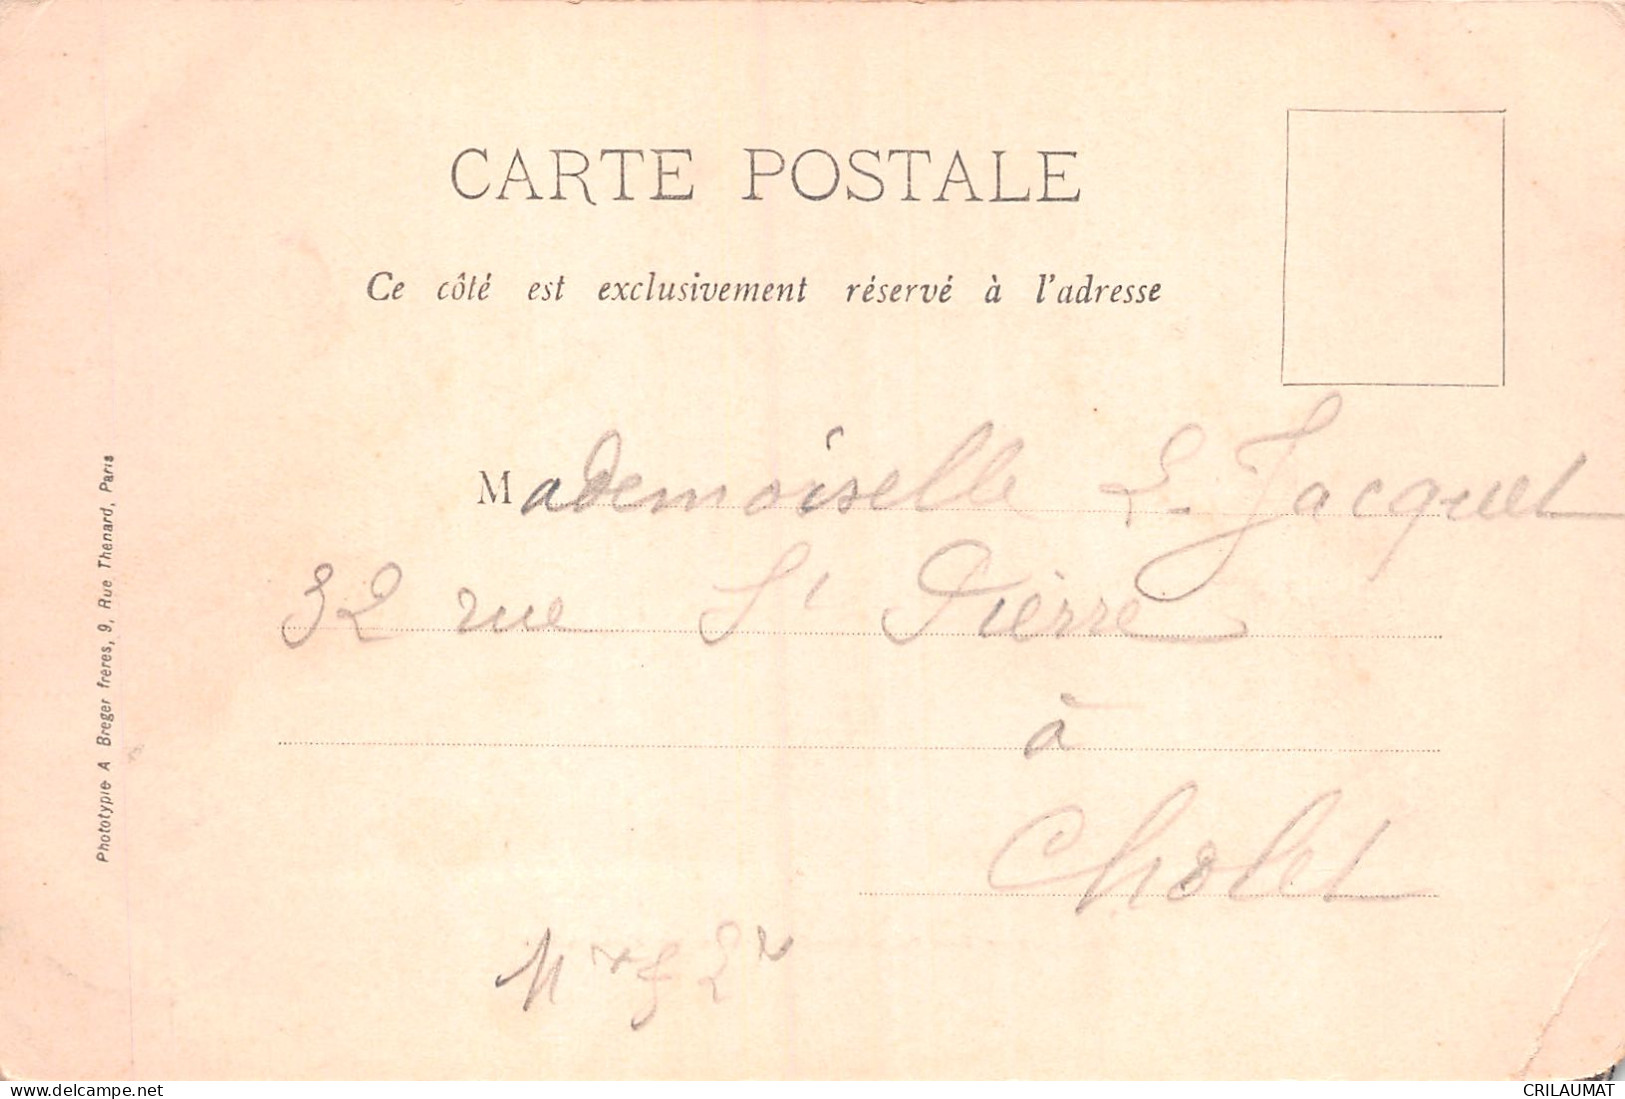 CARTE POSTALE
Ce côté est exclusivement réservé à l'adresse
Mademoiselle L. Jacquet
32 rue St Pierre
à
Cholet
Phototypie A Breger freres, 9, Rue Thenard, Paris
www.delcampe.net
CRILAUMAT